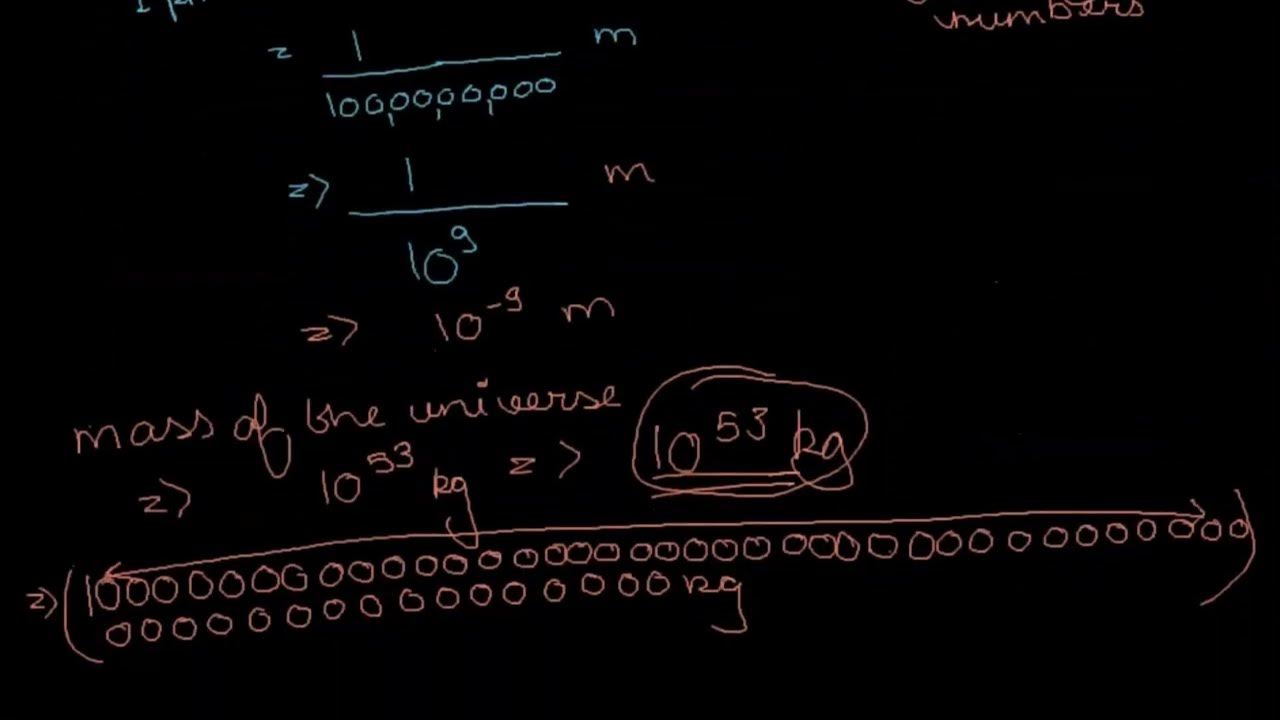 numbers
= 1 m
100,00,00,000
=> 1 m
10^9
=> 10^-9 m
mass of the universe
=> 10^53 kg => 10^53 kg
=> (10000000000000000000000000000000000000
0000000000000000 kg)